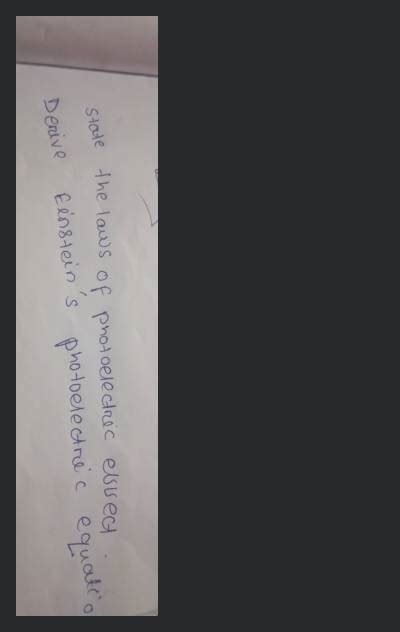 state the laws of photoelectric effect.
Derive Einstein's photoelectric equatio